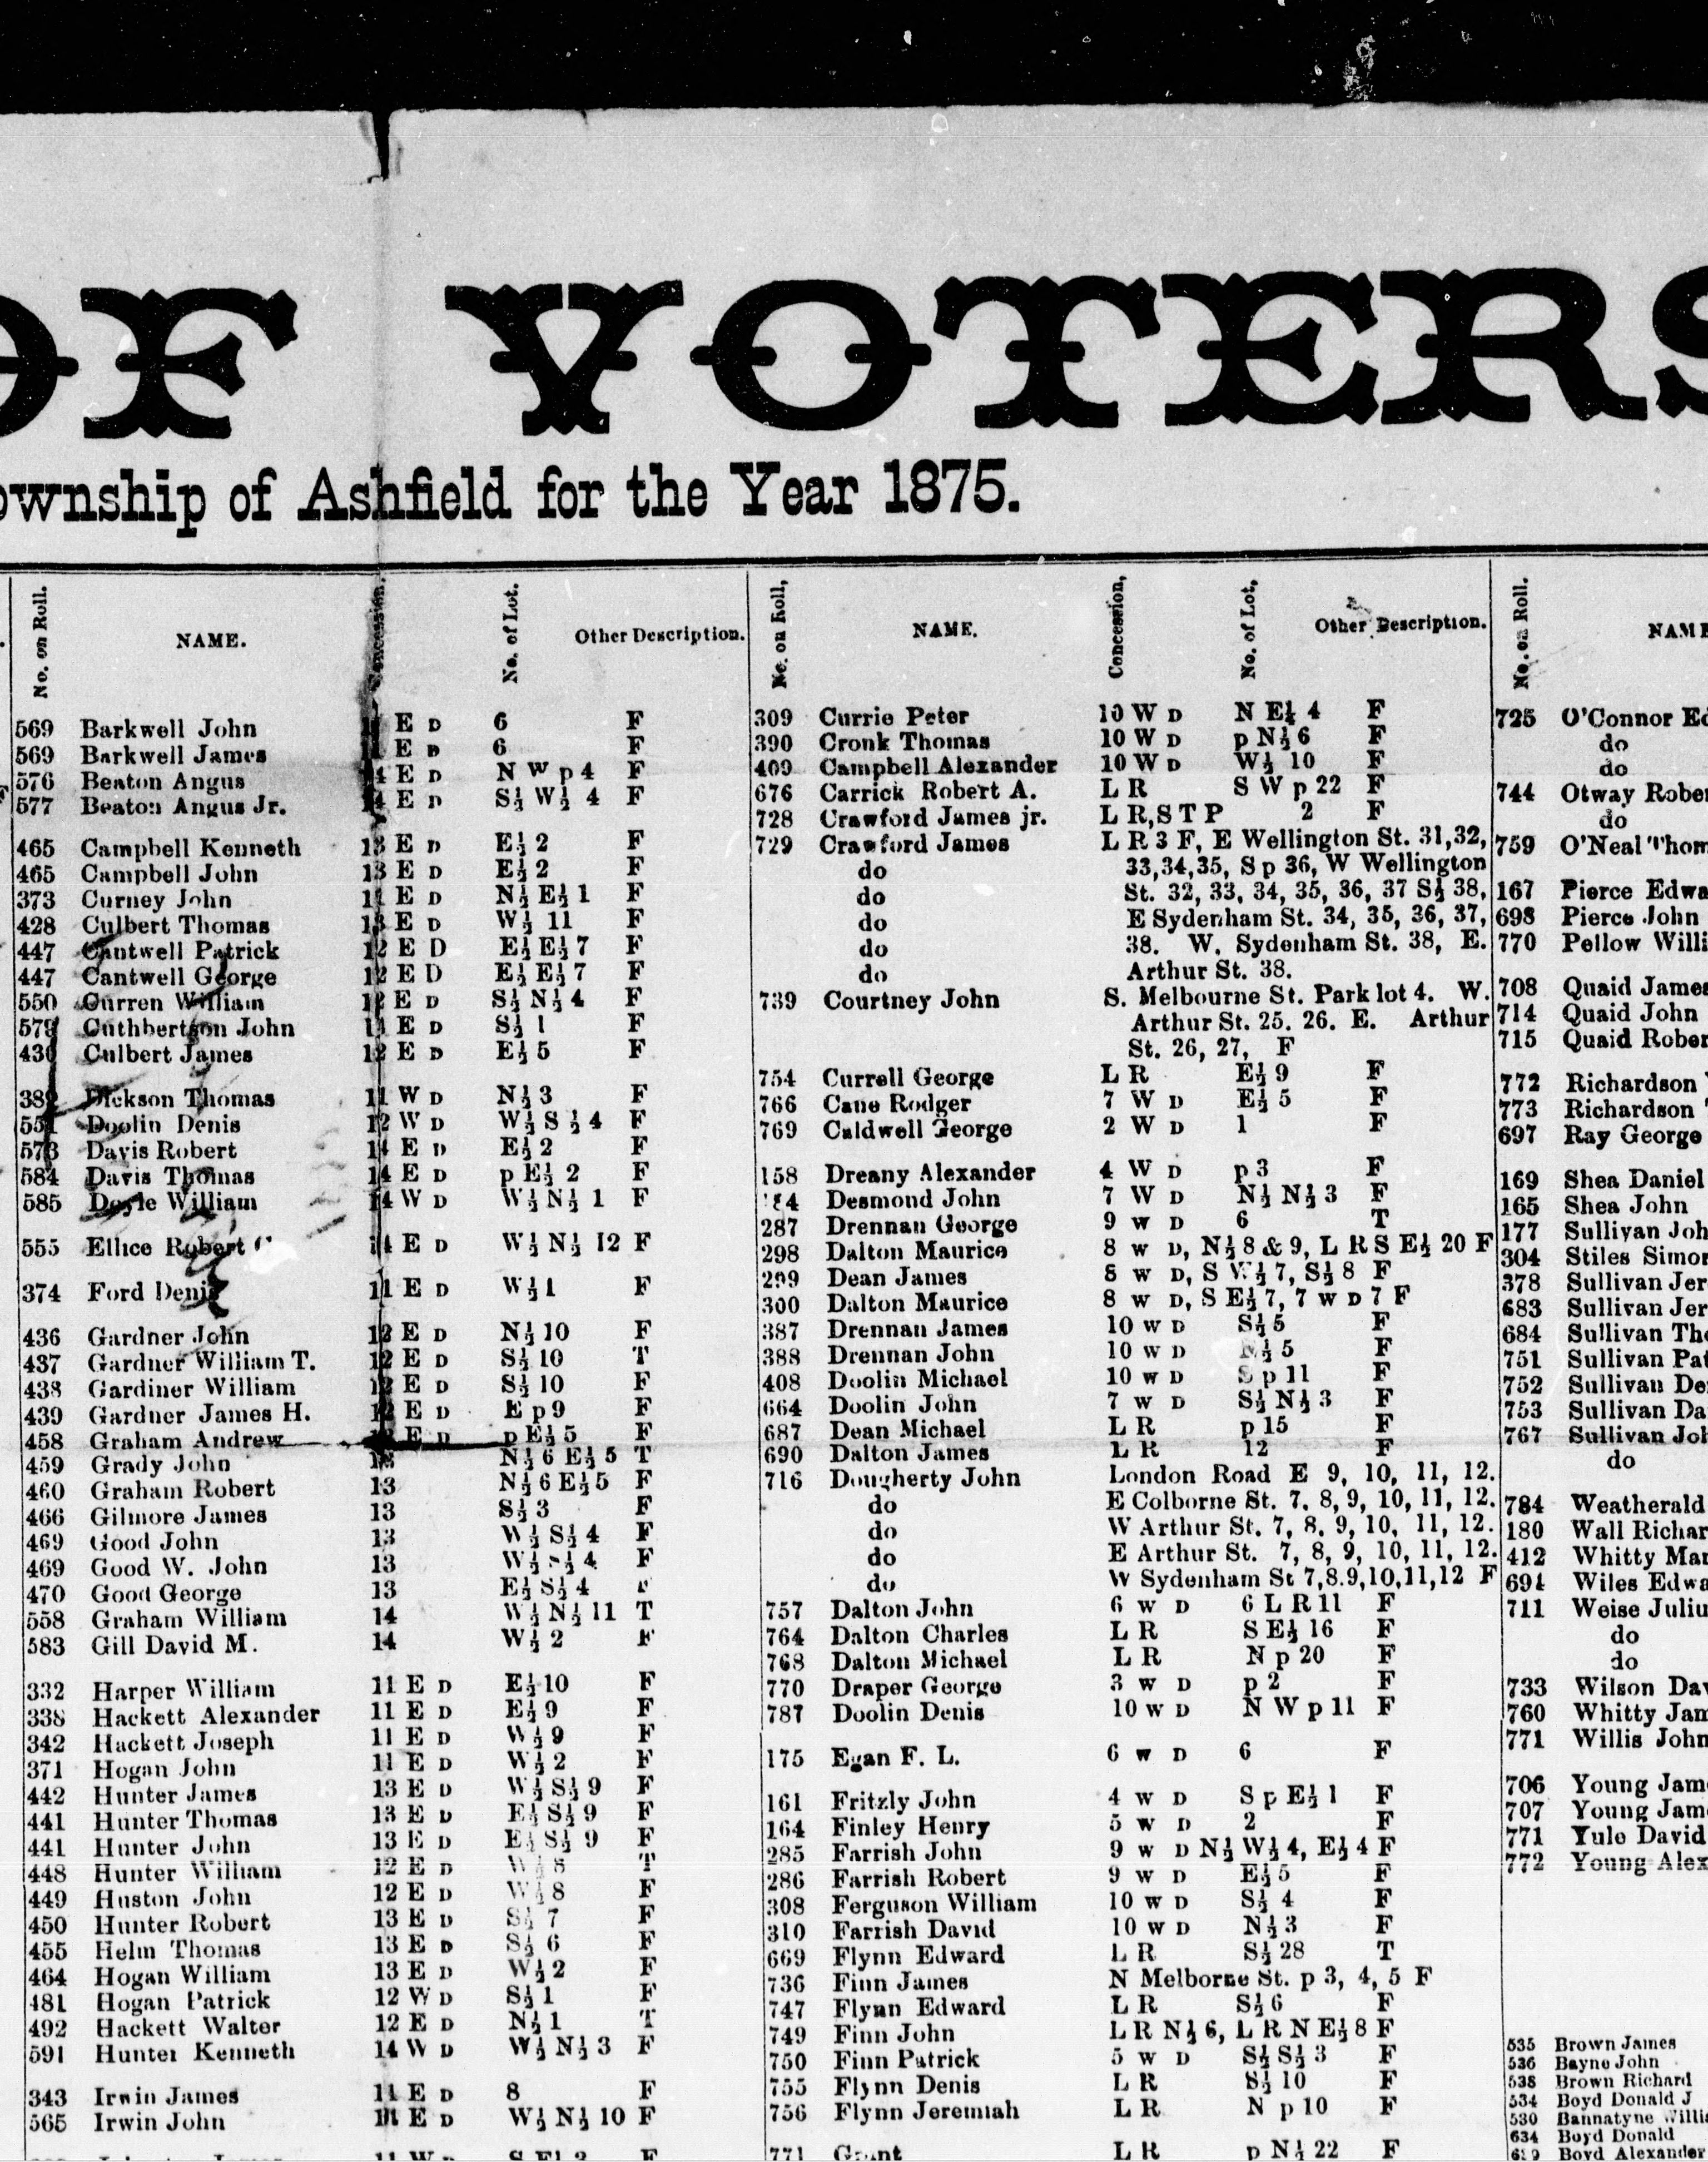 OF VOTERS
ownship of Ashfield for the Year 1875.
No. on Roll. NAME. Concession. No. of Lot. Other Description.
569 Barkwell John E D 6 F
569 Barkwell James E D 6 F
576 Beaton Angus 14 E D N W p 4 F
577 Beaton Angus Jr. 14 E D S½ W½ 4 F
465 Campbell Kenneth 13 E D E½ 2 F
465 Campbell John 13 E D E½ 2 F
373 Curney John 11 E D N½ E½ 1 F
428 Culbert Thomas 13 E D W½ 11 F
447 Cantwell Patrick 12 E D E½ E½ 7 F
447 Cantwell George 12 E D E½ E½ 7 F
550 Curren William 12 E D S½ N½ 4 F
579 Cuthbertson John 11 E D S½ 1 F
430 Culbert James 12 E D E½ 5 F
382 Dickson Thomas 11 W D N½ 3 F
551 Doolin Denis 12 W D W½ S ½ 4 F
573 Davis Robert 14 E D E½ 2 F
584 Davis Thomas 14 E D p E½ 2 F
585 Doyle William 14 W D W½ N½ 1 F
555 Ellice Robert 14 E D W½ N½ 12 F
374 Ford Denis 11 E D W½ 1 F
436 Gardner John 12 E D N½ 10 F
437 Gardner William T. 12 E D S½ 10 T
438 Gardiner William 12 E D S½ 10 F
439 Gardner James H. 12 E D E p 9 F
458 Graham Andrew E D p E½ 5 F
459 Grady John 13 N½ 6 E½ 5 T
460 Graham Robert 13 N½ 6 E½ 5 F
466 Gilmore James 13 S½ 3 F
469 Good John 13 W½ S½ 4 F
469 Good W. John 13 W½ S½ 4 F
470 Good George 13 E½ S½ 4 F
558 Graham William 14 W½ N½ 11 T
583 Gill David M. 14 W½ 2 F
332 Harper William 11 E D E½ 10 F
338 Hackett Alexander 11 E D E½ 9 F
342 Hackett Joseph 11 E D W½ 9 F
371 Hogan John 11 E D W½ 2 F
442 Hunter James 13 E D W½ S½ 9 F
441 Hunter Thomas 13 E D E½ S½ 9 F
441 Hunter John 13 E D E½ S½ 9 F
448 Hunter William 12 E D W½ 8 T
449 Huston John 12 E D W½ 8 F
450 Hunter Robert 13 E D S½ 7 F
455 Helm Thomas 13 E D S½ 6 F
464 Hogan William 13 E D W½ 2 F
481 Hogan Patrick 12 W D S½ 1 F
492 Hackett Walter 12 E D N½ 1 T
591 Hunter Kenneth 14 W D W½ N½ 3 F
343 Irwin James 11 E D 8 F
565 Irwin John E D W½ N½ 10 F
No. on Roll, NAME. Concession, No. of Lot, Other Description.
309 Currie Peter 10 W D N E½ 4 F
390 Cronk Thomas 10 W D p N½ 6 F
409 Campbell Alexander 10 W D W½ 10 F
676 Carrick Robert A. L R S W p 22 F
728 Crawford James jr. L R, S T P 2 F
729 Crawford James L R 3 F, E Wellington St. 31, 32,
do 33, 34, 35, S p 36, W Wellington
do St. 32, 33, 34, 35, 36, 37 S½ 38,
do E Sydenham St. 34, 35, 36, 37,
do 38. W. Sydenham St. 38, E.
do Arthur St. 38.
739 Courtney John S. Melbourne St. Park lot 4. W.
Arthur St. 25. 26. E. Arthur
St. 26, 27, F
754 Currell George L R E½ 9 F
766 Cane Rodger 7 W D E½ 5 F
769 Caldwell George 2 W D 1 F
158 Dreany Alexander 4 W D p 3 F
Desmond John 7 W D N½ N½ 3 F
287 Drennan George 9 W D 6 T
298 Dalton Maurice 8 W D, N½ 8 & 9, L R S E½ 20 F
299 Dean James 8 W D, S W½ 7, S½ 8 F
300 Dalton Maurice 8 W D, S E½ 7, 7 W D 7 F
387 Drennan James 10 W D S½ 5 F
388 Drennan John 10 W D N½ 5 F
408 Doolin Michael 10 W D S p 11 F
664 Doolin John 7 W D S½ N½ 3 F
687 Dean Michael L R p 15 F
690 Dalton James L R 12 F
716 Dougherty John London Road E 9, 10, 11, 12.
do E Colborne St. 7, 8, 9, 10, 11, 12.
do W Arthur St. 7, 8. 9, 10, 11, 12.
do E Arthur St. 7, 8, 9, 10, 11, 12.
do W Sydenham St 7,8.9,10,11,12 F
757 Dalton John 6 W D 6 L R 11 F
764 Dalton Charles L R S E½ 16 F
768 Dalton Michael L R N p 20 F
770 Draper George 3 W D p 2 F
787 Doolin Denis 10 W D N W p 11 F
175 Egan F. L. 6 W D 6 F
161 Fritzly John 4 W D S p E½ 1 F
164 Finley Henry 5 W D 2 F
285 Farrish John 9 W D N½ W½ 4, E½ 4 F
286 Farrish Robert 9 W D E½ 5 F
308 Ferguson William 10 W D S½ 4 F
310 Farrish David 10 W D N½ 3 F
669 Flynn Edward L R S½ 28 T
736 Finn James N Melborne St. p 3, 4, 5 F
747 Flynn Edward L R S½ 6 F
749 Finn John L R N½ 6, L R N E½ 8 F
750 Finn Patrick 5 W D S½ S½ 3 F
755 Flynn Denis L R S½ 10 F
756 Flynn Jeremiah L R N p 10 F
771 Grant L R p N½ 22 F
No. on Roll. NAME
725 O'Connor Ed
do
do
744 Otway Rober
do
759 O'Neal Thom
167 Pierce Edwa
698 Pierce John
770 Pellow Willi
708 Quaid James
714 Quaid John
715 Quaid Rober
772 Richardson
773 Richardson
697 Ray George
169 Shea Daniel
165 Shea John
177 Sullivan Joh
304 Stiles Simon
378 Sullivan Jer
683 Sullivan Jer
684 Sullivan Tho
751 Sullivan Pat
752 Sullivan De
753 Sullivan Da
767 Sullivan Joh
do
784 Weatherald
180 Wall Richar
412 Whitty Mar
691 Wiles Edwa
711 Weise Juliu
do
do
733 Wilson Dav
760 Whitty Jam
771 Willis John
706 Young Jam
707 Young Jam
771 Yule David
772 Young Alex
535 Brown James
536 Bayne John
538 Brown Richard
534 Boyd Donald J
530 Bannatyne Willi
634 Boyd Donald
Boyd Alexander